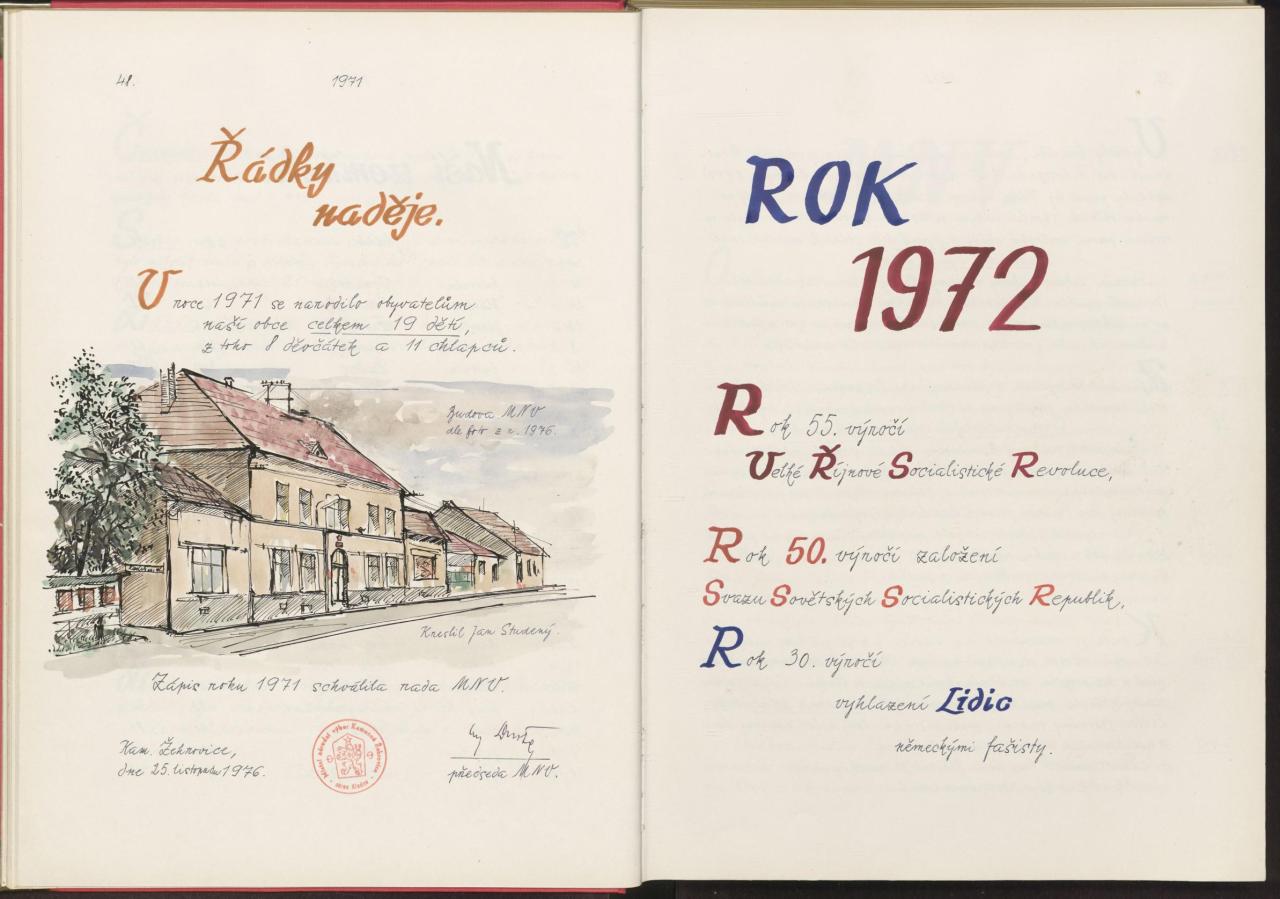 48.
1971
Řádky
naděje.
V roce 1971 se narodilo obyvatelům
naší obce celkem 19 dětí,
z toho 8 děvčátek a 11 chlapců.
Budova MNV
dle foto z r. 1976.
Kreslil Jan Studený.
Zápis roku 1971 schválila rada MNV.
Kam. Žehrovice,
dne 25. listopadu 1976.
Místní národní výbor Kamenné Žehrovice
okres Kladno
předseda MNV.
ROK
1972
Rok 55. výročí
Velké Říjnové Socialistické Revoluce,
Rok 50. výročí založení
Svazu Sovětských Socialistických Republik,
Rok 30. výročí
vyhlazení Lidic
německými fašisty.